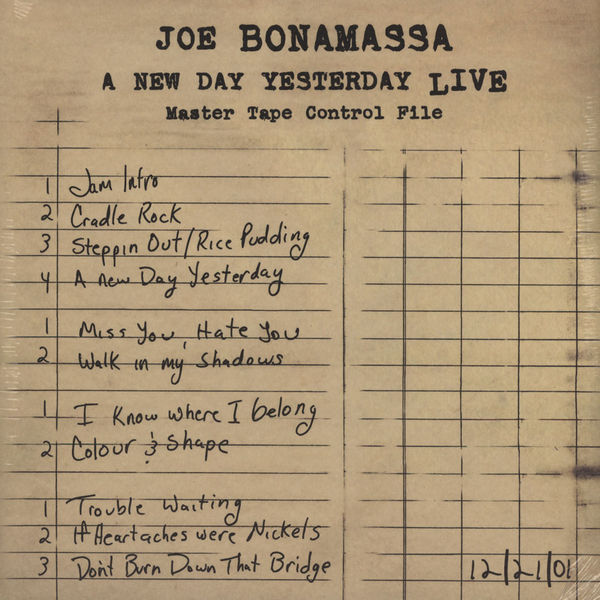 JOE BONAMASSA
A NEW DAY YESTERDAY LIVE
Master Tape Control File
1 Jam Intro
2 Cradle Rock
3 Steppin Out/Rice Pudding
4 A New Day Yesterday
1 Miss You, Hate You
2 Walk in my Shadows
1 I Know where I belong
2 Colour & Shape
1 Trouble Waiting
2 If Heartaches were Nickels
3 Don't Burn Down That Bridge
12/21/01